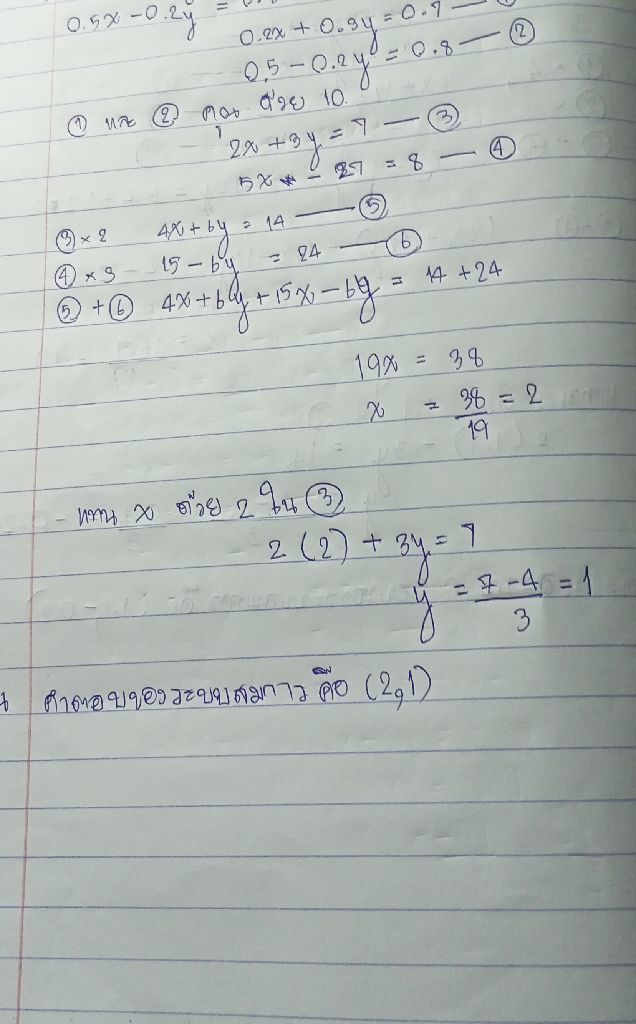 0.5x - 0.2y =
0.2x + 0.3y = 0.7 — 
0.5 - 0.2y = 0.8 — ②
① และ ② คูณ ด้วย 10
2x + 3y = 7 — ③
5x - 27 = 8 — ④
③ × 2 4x + 6y = 14 — ⑤
④ × 3 15 - 6y = 24 — ⑥
⑤ + ⑥ 4x + 6y + 15x - 6y = 14 + 24
19x = 38
x = 38/19 = 2
แทน x ด้วย 2 ใน ③
2 (2) + 3y = 7
y = 7 - 4/3 = 1
คำตอบของระบบสมการ คือ (2,1)